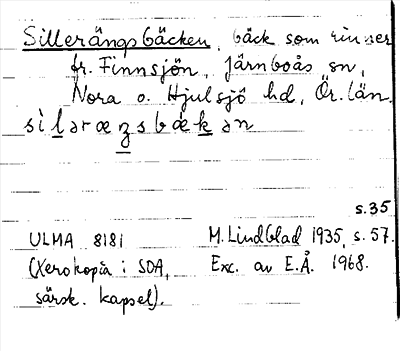 Sillerängsbäcken, bäck som rinner
fr. Finnsjön, Järnboås sn,
Nora o. Hjulsjö hd, Ör. län.
s.35
ULMA 8181 M. Lindblad 1935, s. 57.
(Xerokopia i SOA, Exc. av E.Å. 1968.
särsk. kapsel).